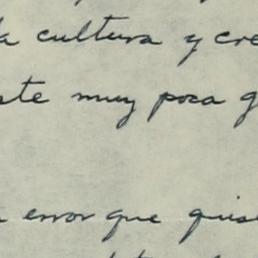 la cultura y cre
ste muy poca g
error que quis